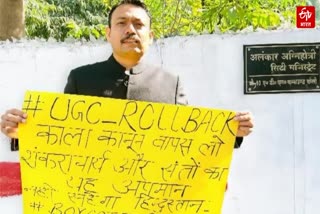 etv
भारत
अलंकार अग्निहोत्री
सिटी मजिस्ट्रेट
#UGC_ROLLBACK
काला कानून वापस लो
शंकराचार्य और संतों का
यह अपमान
नहीं सहेगा हिन्दुस्तान
# BOY